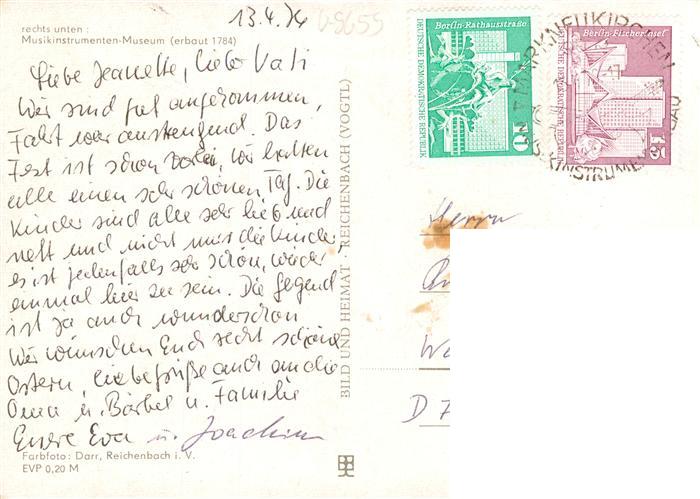 13.4.74
rechts unten :
Musikinstrumenten-Museum (erbaut 1784)
Liebe Jeanette, lieber Vati
Wir sind gut angekommen,
Fahrt war anstrengend. Das
Fest ist schon vorbei, wir hatten
alle einen sehr schönen Tag. Die
Kinder sind alle sehr lieb und
nett und nicht nur die Kinder
es ist jedenfalls sehr schön, wieder
einmal hier zu sein. Die Gegend
ist ja auch wunderschön
Wir wünschen Euch recht schöne
Ostern, liebe Grüße auch an die
Oma u. Bärbel u. Familie
Eure Eva u. Joachim
Farbfoto: Darr, Reichenbach i. V.
EVP 0,20 M
BILD UND HEIMAT · REICHENBACH (VOGTL)
Berlin-Rathausstraße
DEUTSCHE DEMOKRATISCHE REPUBLIK
10
Berlin-Fischerinsel
DEUTSCHE DEMOKRATISCHE
15
MARKNEUKIRCHEN
Herrn
D 7